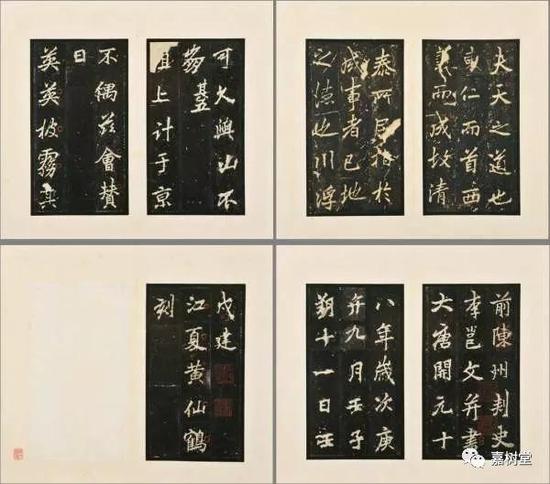 夫天之道也
東仁而首西
義而成故清
泰所居指於
成事者已地
之德也川浮
可大與山不
其五
且上計于京
不偶茲會贊
曰
英英披霧
前陳州刺史
李邕文并書
大唐開元十
八年歲次庚
午九月壬子
朔十一日壬
戌建
江夏黃仙鶴
刻
嘉树堂